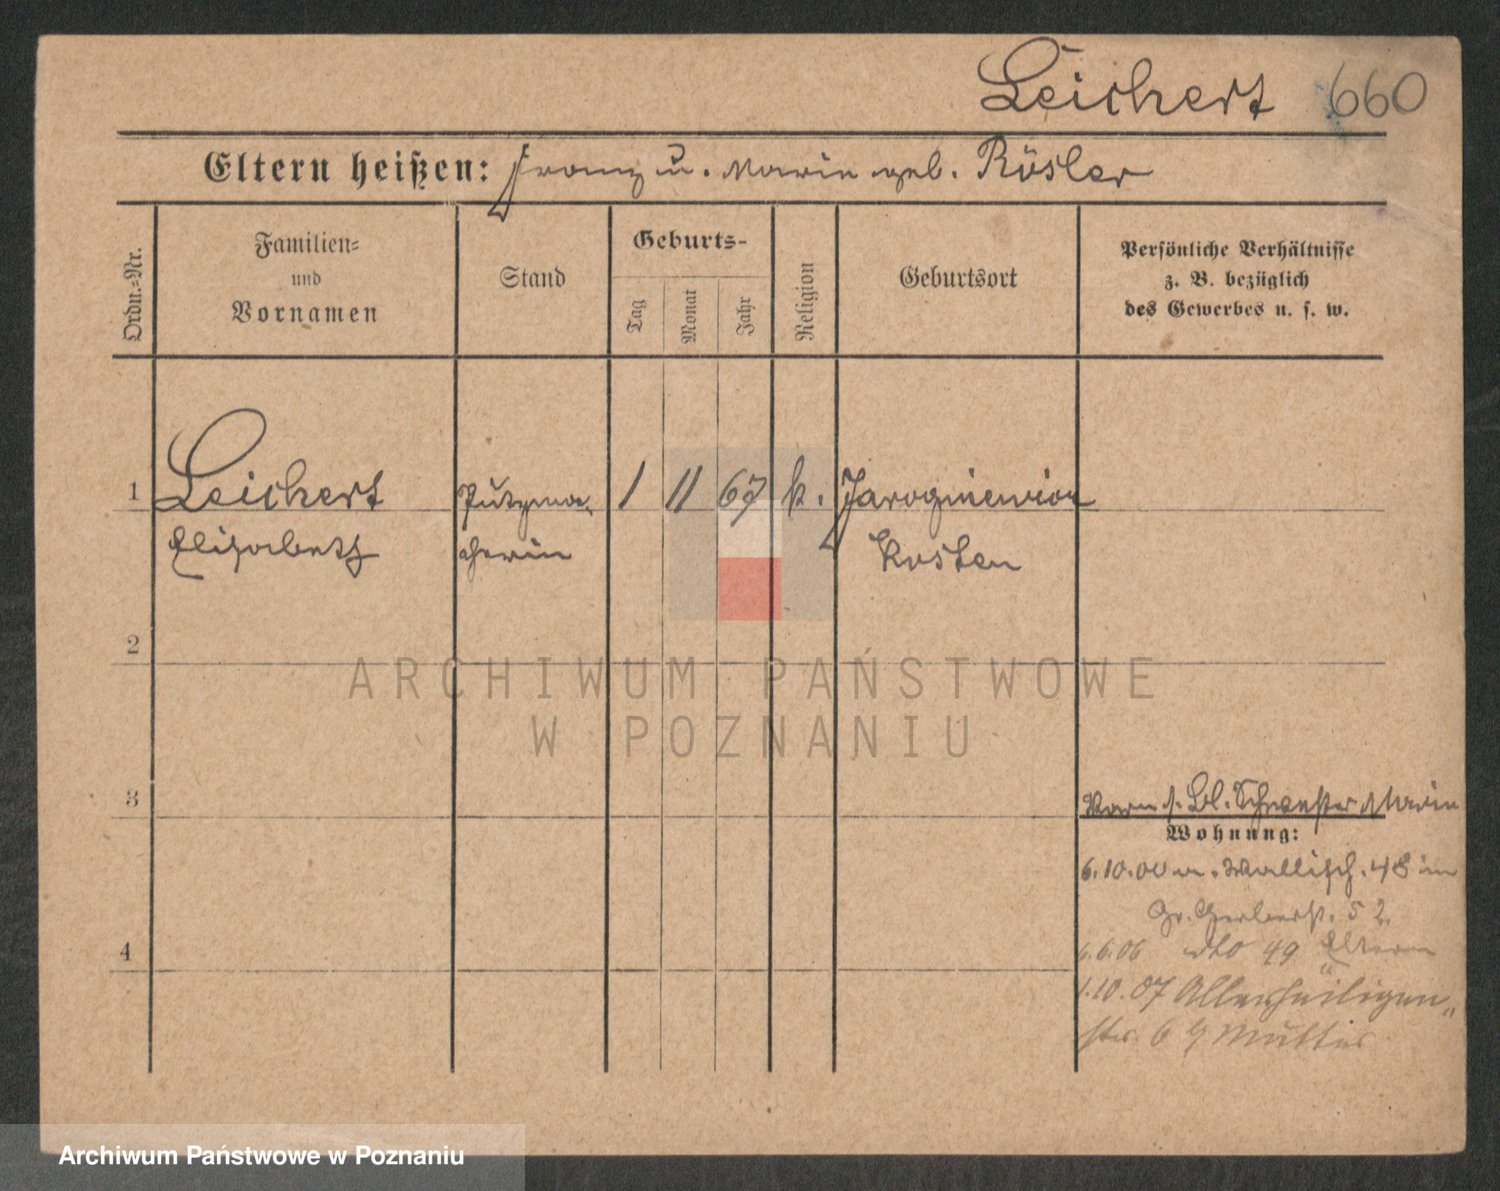 Leichert 660
Eltern heißen: Franz u. Marie geb. Rösler
Ordn.-Nr.
Familien-
und
Vornamen
Stand
Geburts-
Tag
Monat
Jahr
Religion
Geburtsort
Persönliche Verhältnisse
z. B. bezüglich
des Gewerbes u. s. w.
1 Leichert Putzma- 1 11 67 k. Jarogniewice
Elisabeth cherin Kosten
2
ARCHIWUM PAŃSTWOWE
W POZNANIU
3
Schwester Marie
Wohnung:
6.10.00 Wallisch. 48
Gr. Gerberst. 52.
6.06 dto 49 Eltern
4
1.10.07 Allerheiligen-
str. 6 Mutter
Archiwum Państwowe w Poznaniu